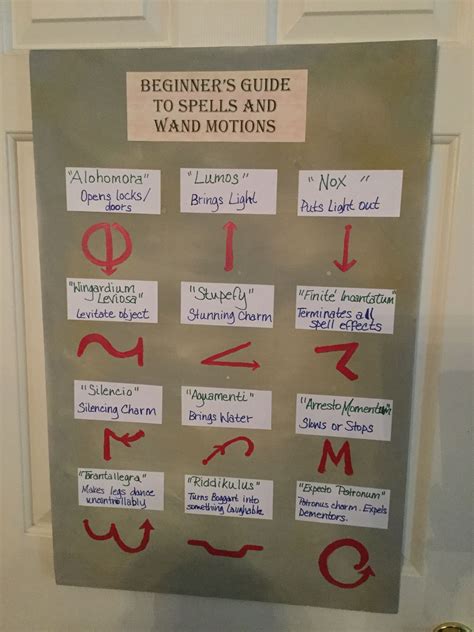 BEGINNER'S GUIDE
TO SPELLS AND
WAND MOTIONS
"Alohomora"
Opens locks/
doors
"Lumos"
Brings Light
"Nox"
Puts Light out
"Wingardium
Leviosa"
Levitate object
"Stupefy"
Stunning Charm
"Finité Incantatum"
Terminates all
spell effects
"Silencio"
Silencing Charm
"Aguamenti"
Brings Water
"Arresto Momentum"
Slows or Stops
"Tarantallegra"
Makes legs dance
uncontrollably
"Riddikulus"
Turns Boggart into
something laughable
"Expecto Patronum"
Patronus charm. Expels
Dementors.